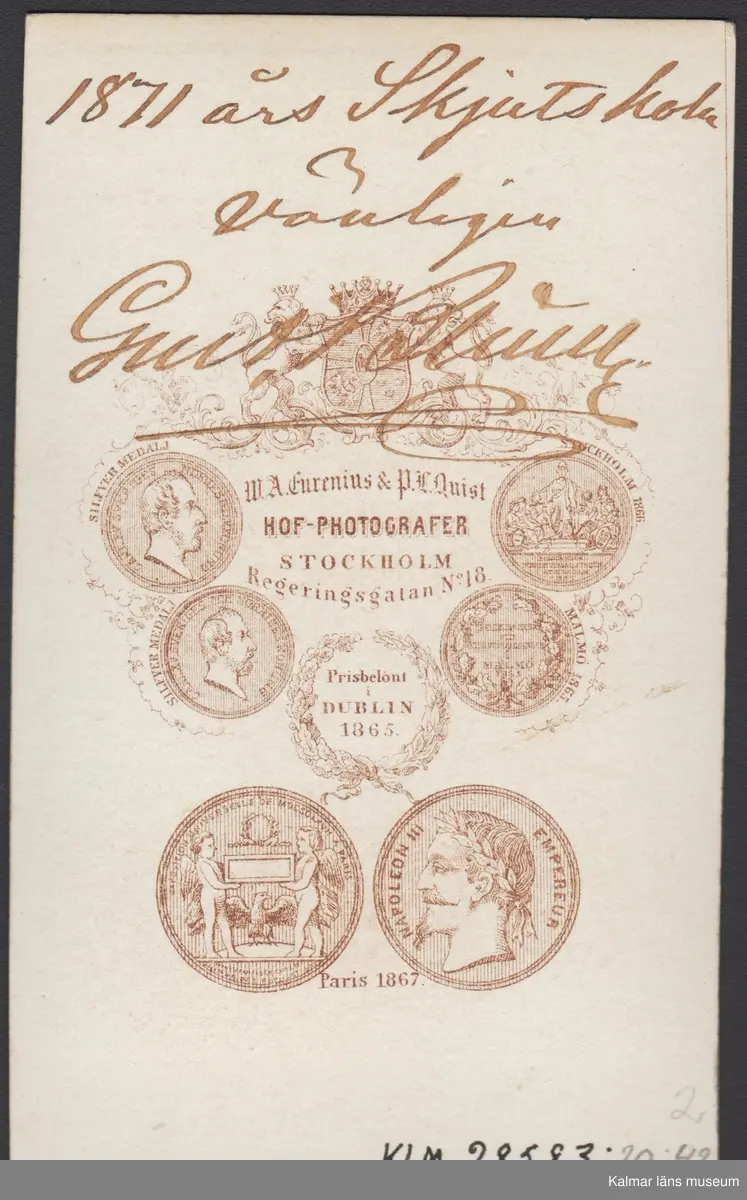 1871 års Skjutskola
vänligen
Gust
SILFVER MEDALJ
STOCKHOLM 1866.
W. A. Eurenius & P. L. Quist
HOF-PHOTOGRAFER
STOCKHOLM
Regeringsgatan No 18.
SILFVER MEDALJ
MALMÖ 1865.
MALMÖ
Prisbelönt
i
DUBLIN
1865.
NAPOLEON III EMPEREUR
Paris 1867.
2.
KLM 28583:20:42
Kalmar läns museum